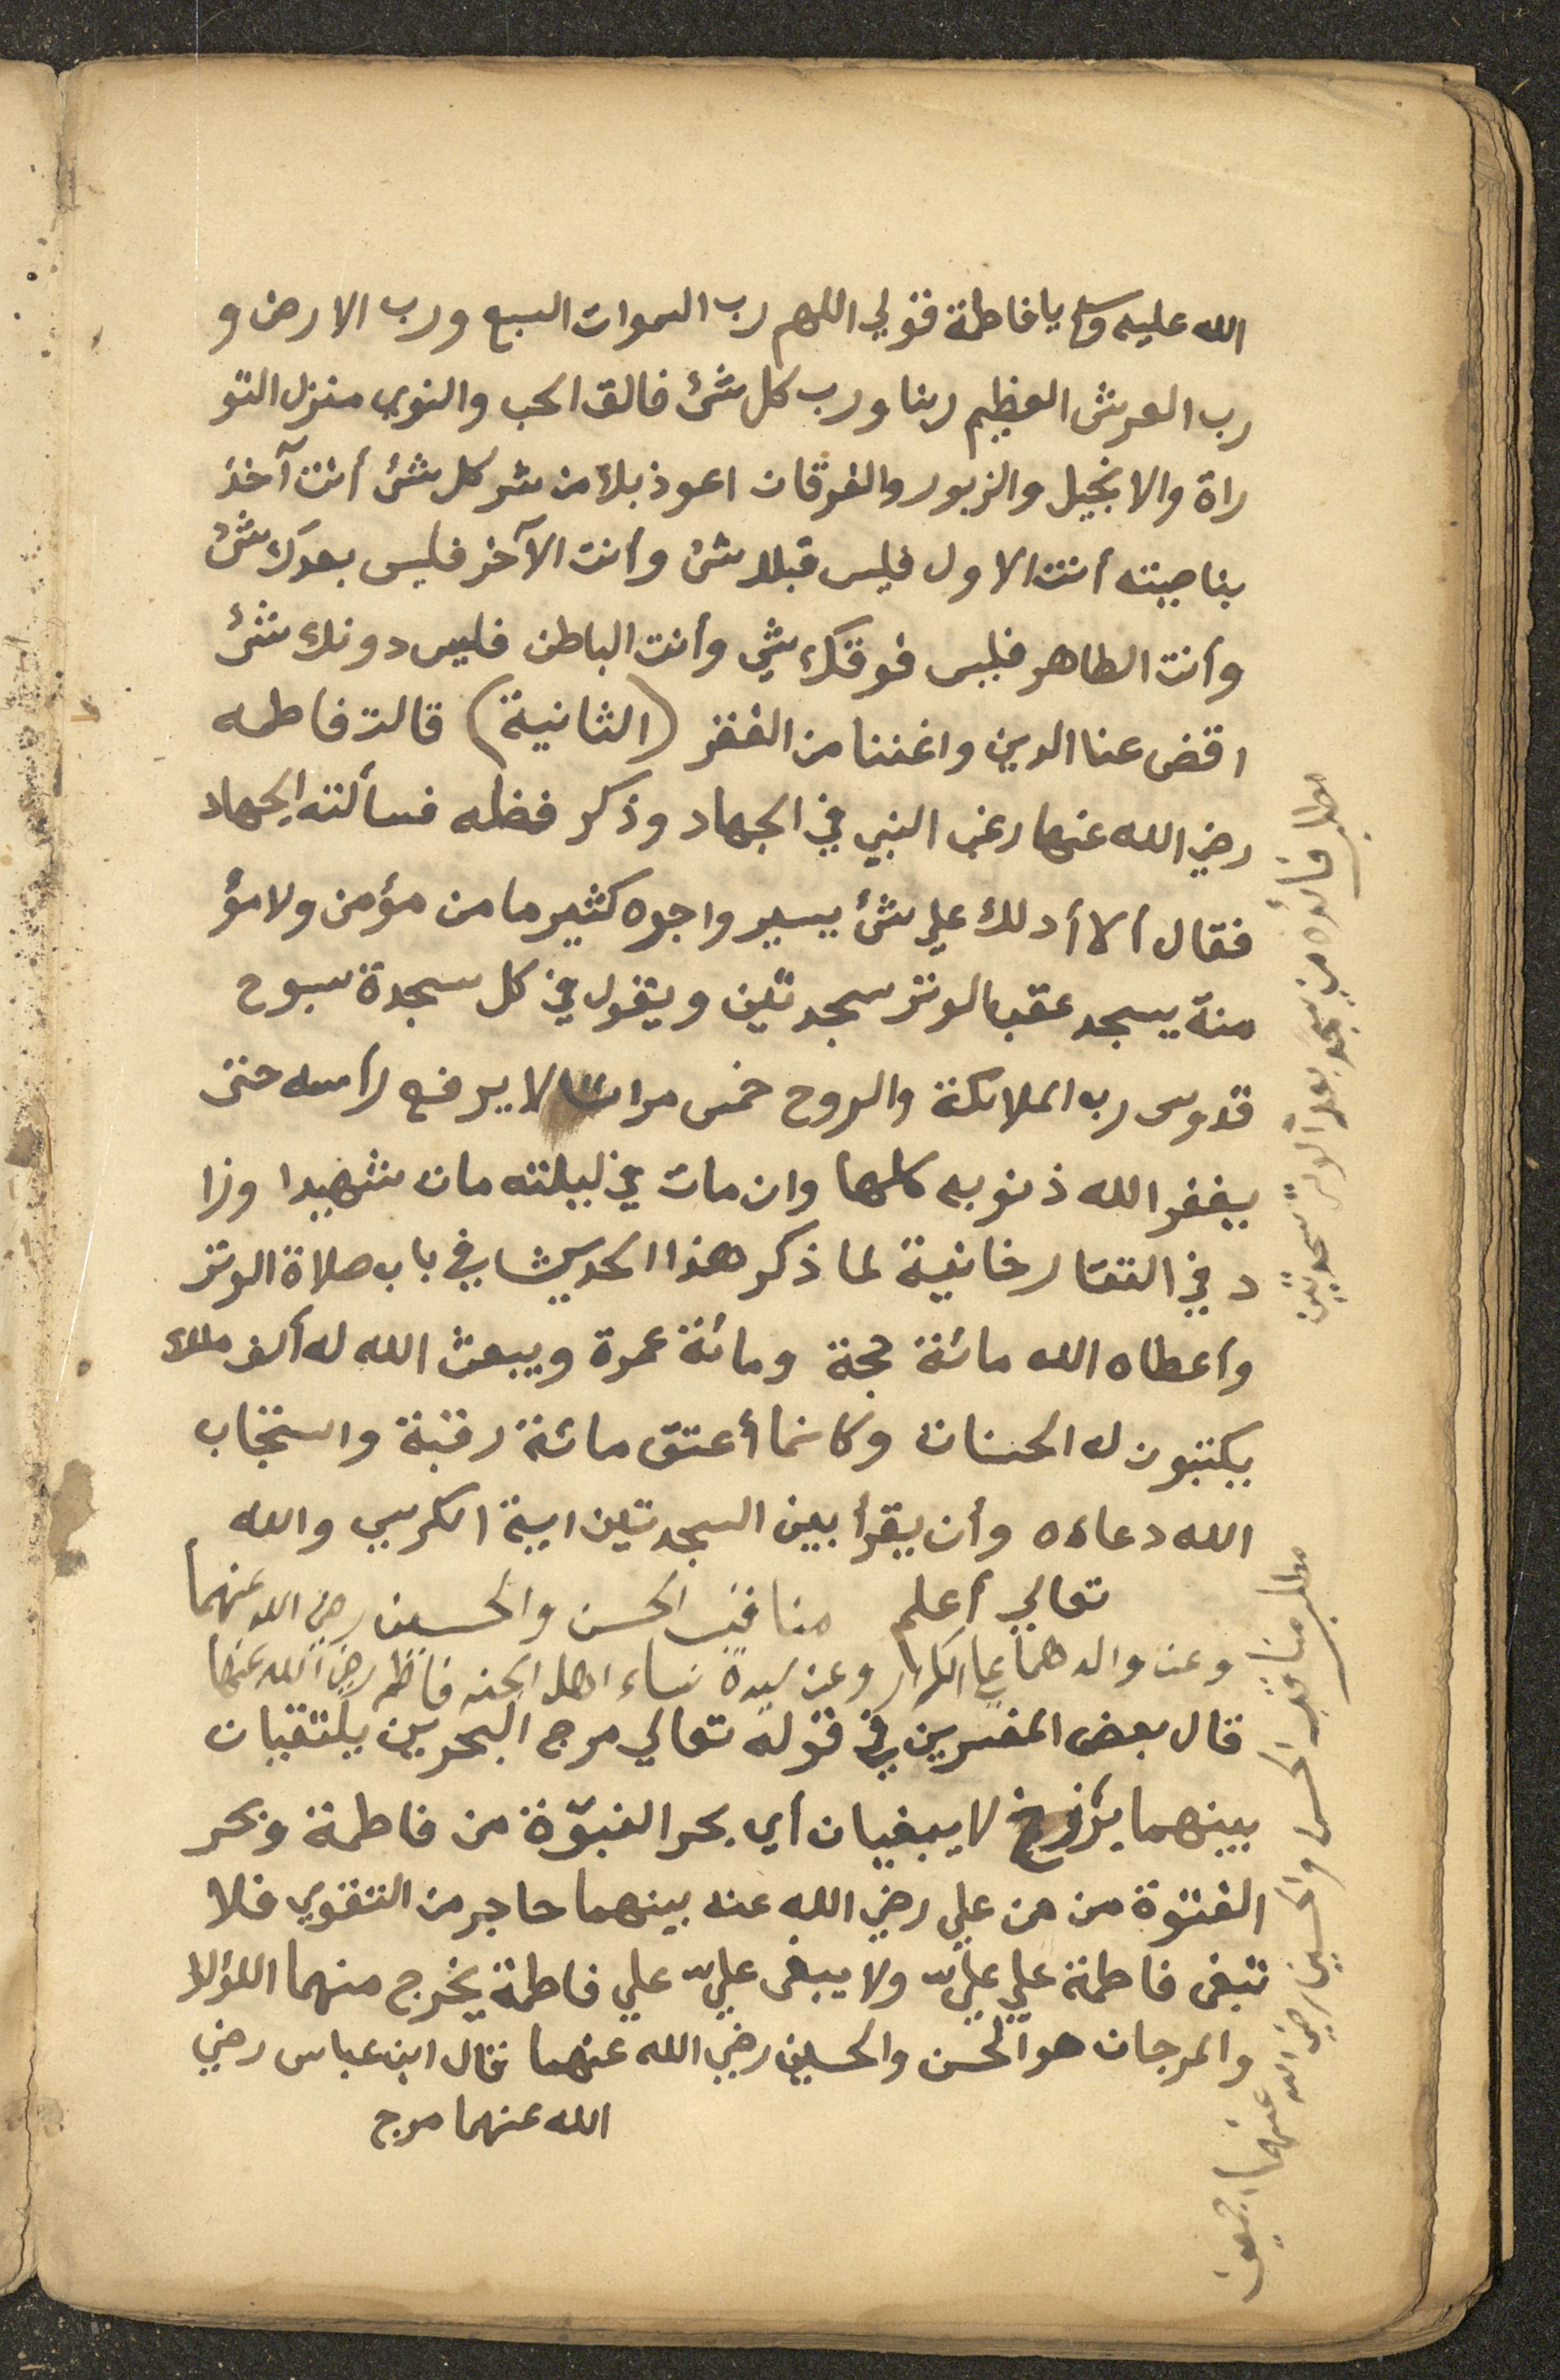 الله عليه وسلم يا فاطمة قولي اللهم رب السموات السبع ورب الارض و
رب العرش العظيم ربنا ورب كل شئ فالق الحب والنوي منزل التو
راة والانجيل والزبور والفرقان اعوذ بك من شر كل شئ أنت آخذ
بناصيته أنت الاول فليس قبلك شئ وأنت الآخر فليس بعدك شئ
وأنت الظاهر فليس فوقك شي وأنت الباطن فليس دونك شئ
اقض عنا الدين واغننا من الفقر (الثانية) قالت فاطمه
رضي الله عنها رغب النبي في الجهاد وذكر فضله فسألته الجهاد
فقال ألا أدلك علي شئ يسير واجره كثير ما من مؤمن ولا مؤ
منة يسجد عقب الوتر سجدتين ويقول في كل سجدة سبوح
قدوس رب الملائكة والروح خمس مرات لا يرفع رأسه حتى
يغفر الله ذنوبه كلها وان مات في ليلته مات شهيدا وزا
د في التتارخانية لما ذكر هذا الحديث في باب صلاة الوتر
واعطاه الله مائة حجة ومائة عمرة ويبعث الله له ألف ملك
يكتبون له الحسنات وكانما أعتق مائة رقبة واستجاب
الله دعاءه وأن يقرأ بين السجدتين اية الكرسي والله
تعالي أعلم مناقب الحسن والحسين رضي الله عنهما
وعن والدهما علي الكرار وعن سيدة نساء اهل الجنه فاطمه رضي الله عنها
قال بعض المفسرين في قوله تعالي مرج البحرين يلتقيان
بينهما برزخ لا يبغيان أي بحر النبوّة من فاطمة وبحر
الفتوة من من علي رضي الله عنه بينهما حاجر من التقوي فلا
تبغى فاطمة علي عليّ ولا يبغى عليّ علي فاطمة يخرج منهما اللؤلؤ
والمرجان هو الحسن والحسين رضي الله عنهما قال ابن عباس رضي
الله عنهما مرج
مطلب فائده من سجد بعد الوتر سجدتين
مطلب مناقب الحسن والحسين رضي الله عنهما اجمعين